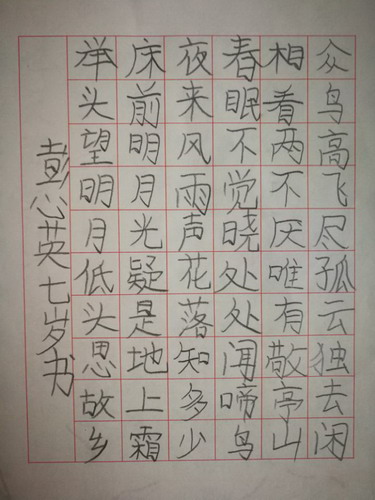 众鸟高飞尽孤云独去闲
相看两不厌唯有敬亭山
春眠不觉晓处处闻啼鸟
夜来风雨声花落知多少
床前明月光疑是地上霜
举头望明月低头思故乡
彭心英七岁书